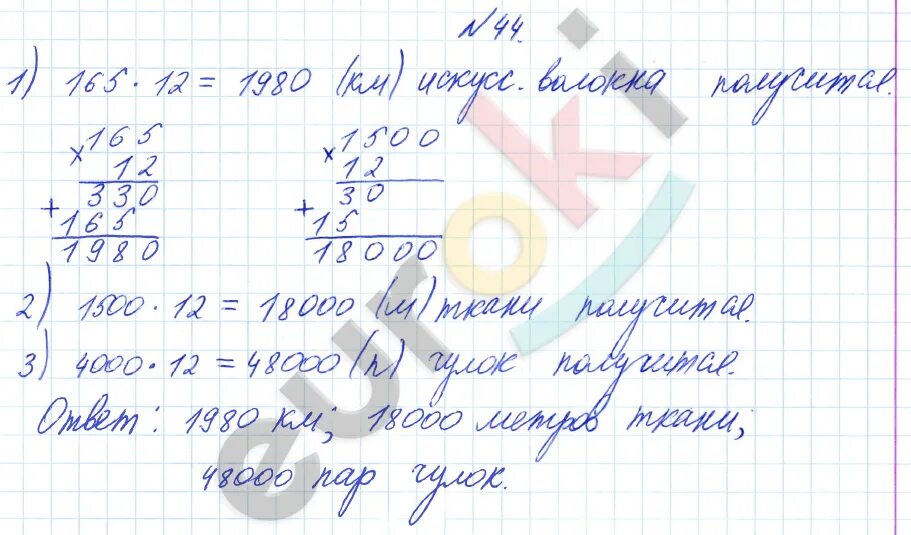 №44.
1) 165 · 12 = 1980 (км) искусс. волокна получится.
× 165
12
330
+ 165
1980
× 1500
12
30
+ 15
18000
2) 1500 · 12 = 18000 (м) ткани получится.
3) 4000 · 12 = 48000 (п) чулок получится.
Ответ: 1980 км; 18000 метров ткани;
48000 пар чулок.
euroki